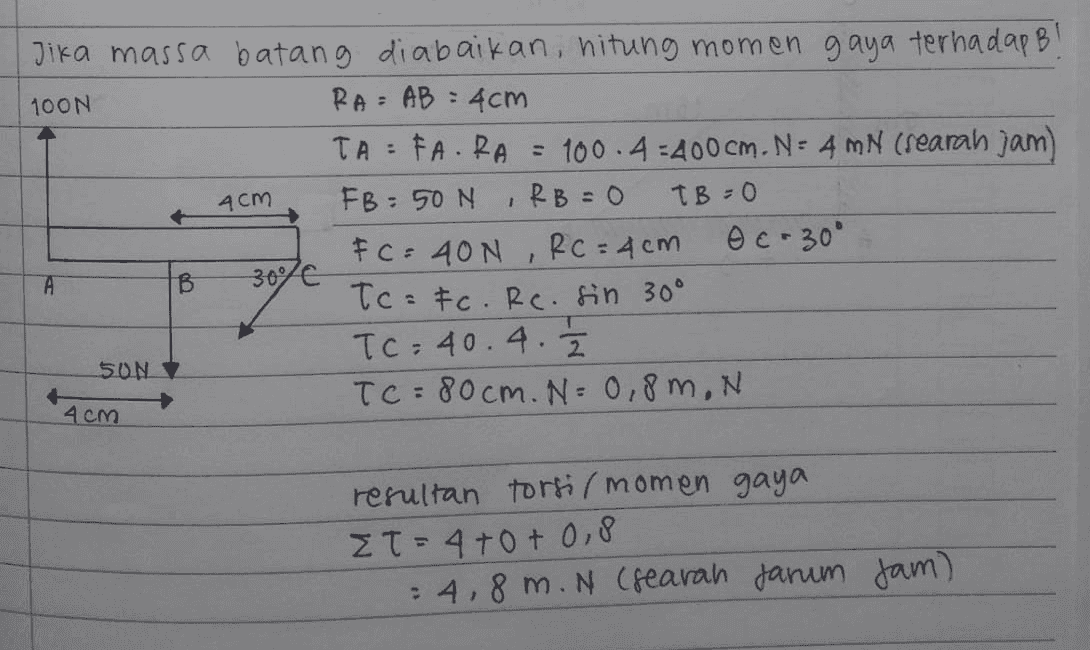 Jika massa batang diabaikan, hitung momen gaya terhadap B!
100N
RA = AB = 4cm
TA = FA . RA = 100 . 4 = 400 cm. N = 4 mN (searah jam)
4cm
FB = 50 N , RB = 0 TB = 0
FC = 40N , RC = 4cm θC = 30°
A B 30° C
TC = FC . RC . sin 30°
TC = 40 . 4 . 1/2
50N
TC = 80 cm. N = 0,8 m. N
4cm
resultan torsi / momen gaya
ΣT = 4 + 0 + 0,8
= 4,8 m. N (searah jarum jam)